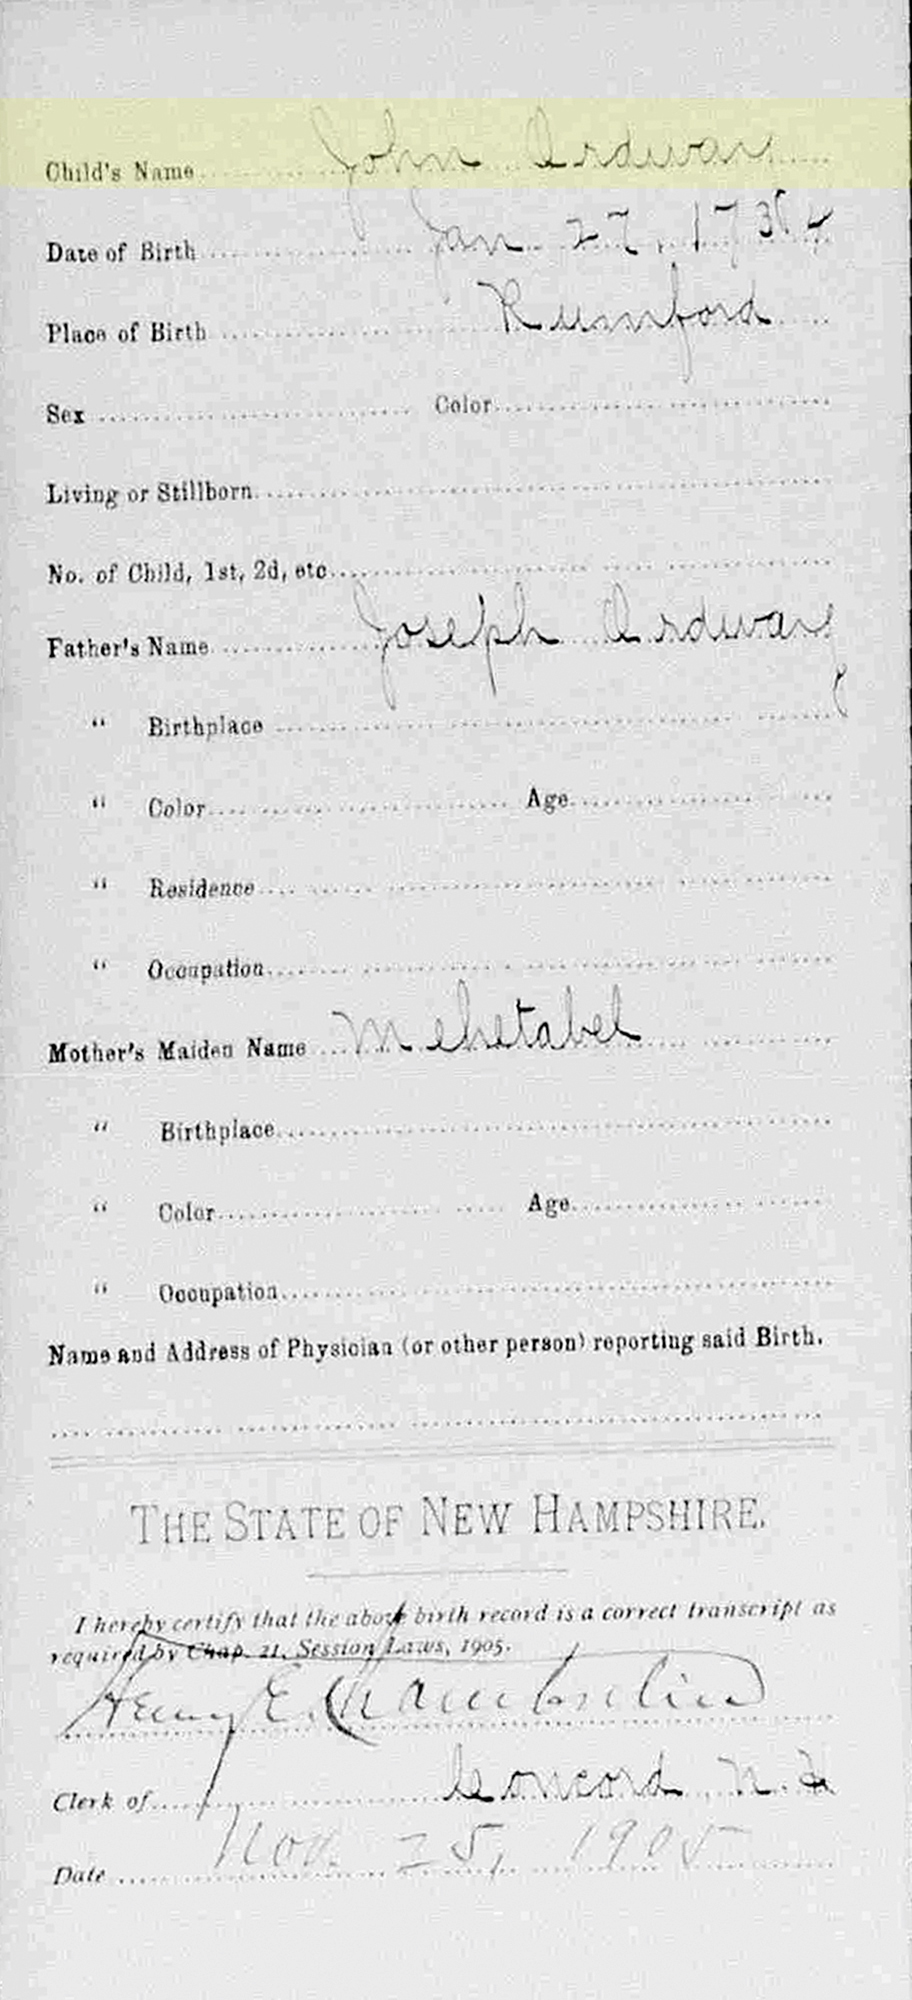 Child's Name John Ordway
Date of Birth Jan 27, 173
Place of Birth Rumford
Sex Color
Living or Stillborn
No. of Child, 1st, 2d, etc
Father's Name Joseph Ordway
" Birthplace
" Color Age
" Residence
" Occupation
Mother's Maiden Name Mehetabel
" Birthplace
" Color Age
" Occupation
Name and Address of Physician (or other person) reporting said Birth.
THE STATE OF NEW HAMPSHIRE.
I hereby certify that the above birth record is a correct transcript as
required by Chap. 21, Session Laws, 1905.
Henry E. Chamberlin
Clerk of Concord N.H
Date Nov. 25, 1905